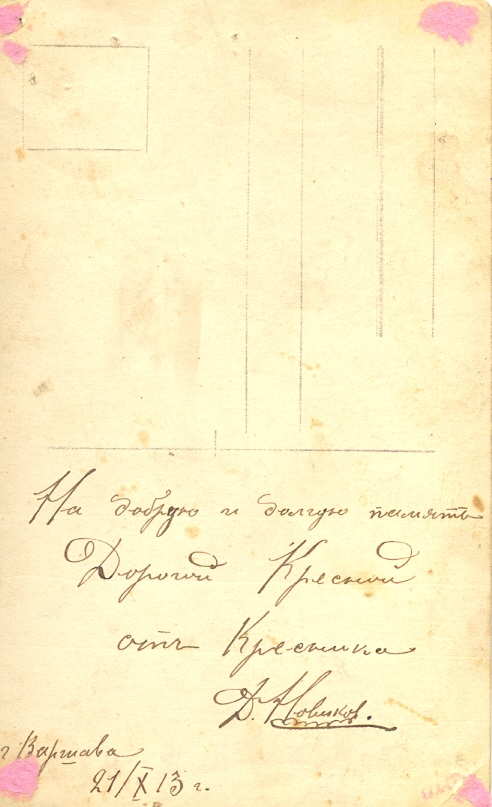 На добрую и долгую память
Дорогой Кресной
отъ Кресника
Д. Новиков.
г Варшава
21/X 13 г.